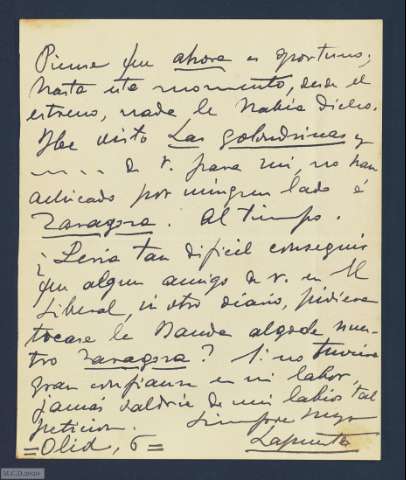 Piense que ahora es oportuno;
hasta este momento, desde el
estreno, nada le había dicho.
He visto Las golondrinas y
---- de V. para mí, no han
achicado por ningún lado á
Zaragoza. Al tiempo.
¿Sería tan difícil conseguir
que algun amigo de V. en El
Liberal, en otro diario, pidiera
tocase la Banda algo de nues-
tro Zaragoza? Si no tuviera
gran confianza en mi labor,
jamás saldría de mis labios tal
peticion. Siempre suyo
Lapuerta
=Olid, 6=